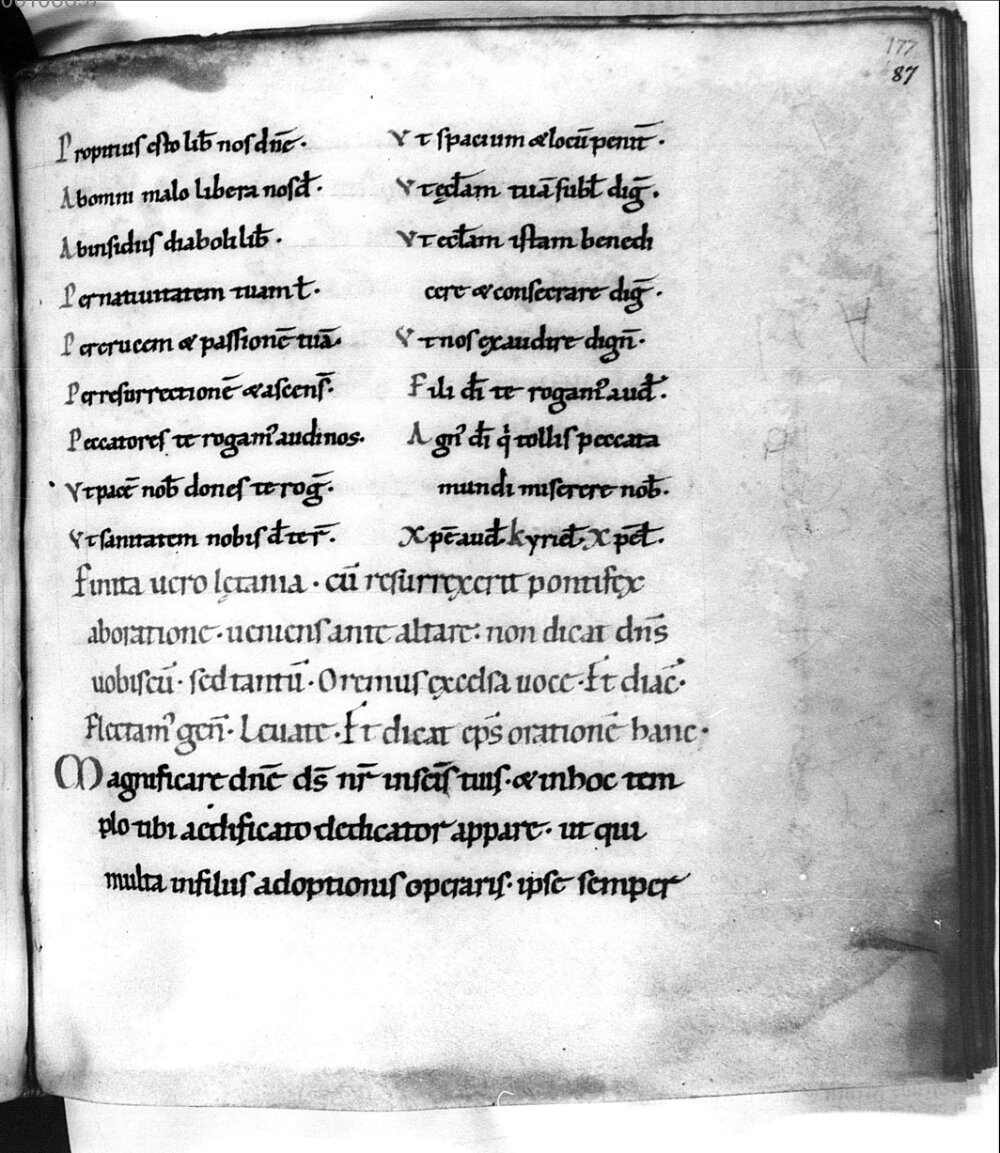 177
87
Propitius esto lib̄ nos dn̄e·
Ab omni malo libera nos d̄·
Ab insidiis diaboli lib̄·
Per natiuitatem tuam l̄·
Per crucem & passionē tuā·
Per resurrectionē & ascens̄·
Peccatores te rogam᾿ audi nos·
Vt pacē nob̄ dones te roḡ·
Vt sanitatem nobis d̄ te r̄·
Vt spacium & locū penit̄·
Vt ęcl̄am tuā subl̄ diḡ·
Vt eccl̄am istam benedi
cere & consecrare diḡ·
Vt nos exaudire dign̄·
Fili dī te rogam᾿ aud̄·
Agn᾿ dī q̇ tollis peccata
mundi miserere nob̄·
Xpē aud̄· kyriel̄· Xpēl̄·
finita uero lętania· cū resurrexerit pontifex
ab oratione· ueniens ante altare: non dicat dn̄s
uobiscū· sed tantū· Oremus excelsa uoce· Et diac̄·
flectam᾿ gen̄· Leuate· Et dicat ep̄s orationē hanc·
Magnificare dn̄e ds̄ nr̄ in scīs tuis· & in hoc tem
plo tibi aedificato dedicator appare· ut qui
multa in filiis adoptionis operaris· ipse semper